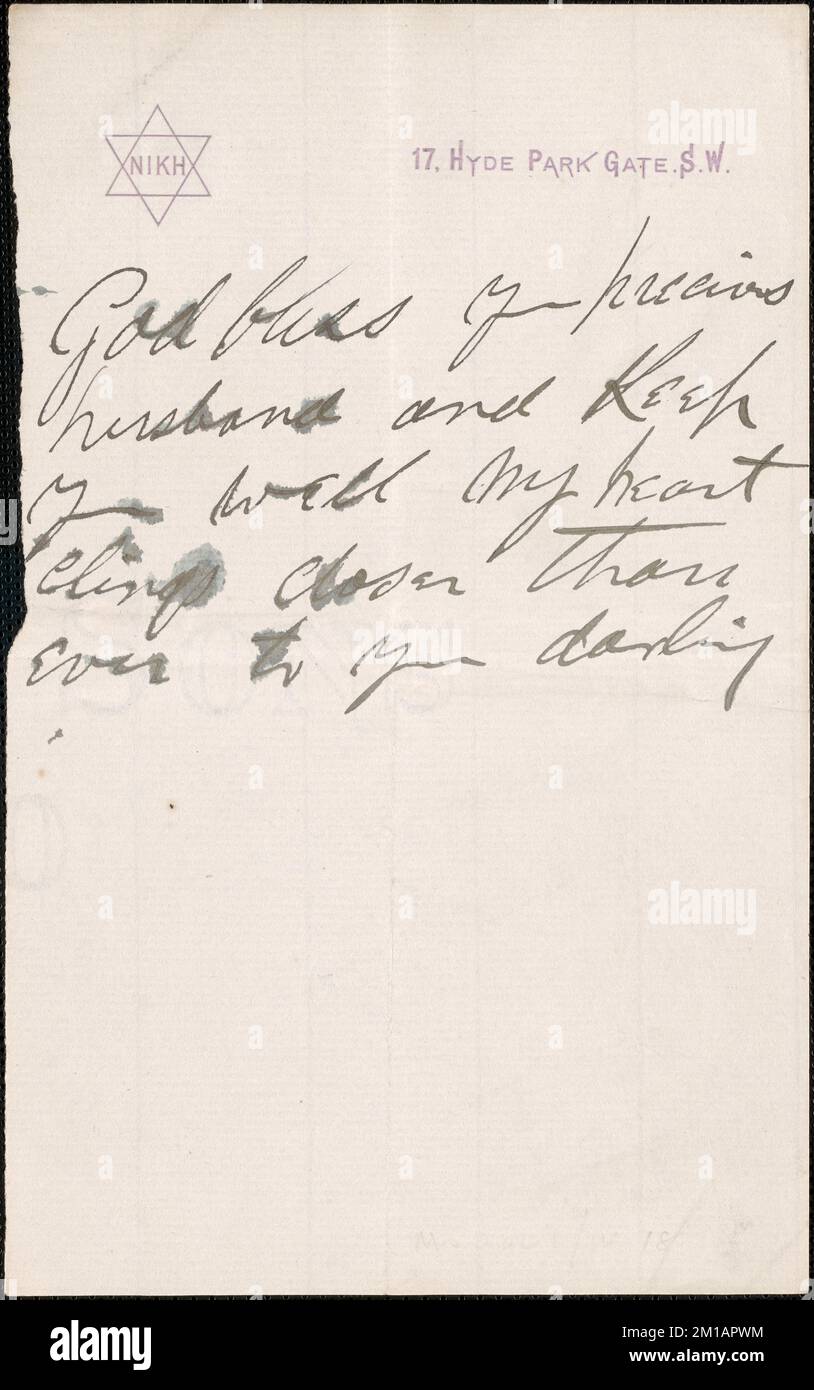 NIKH
17, HYDE PARK GATE. S.W.
God bless you precious
husband and Keep
you well My heart
clings closer than
ever to you darling
alamy
Image ID: 2M1APWM
www.alamy.com